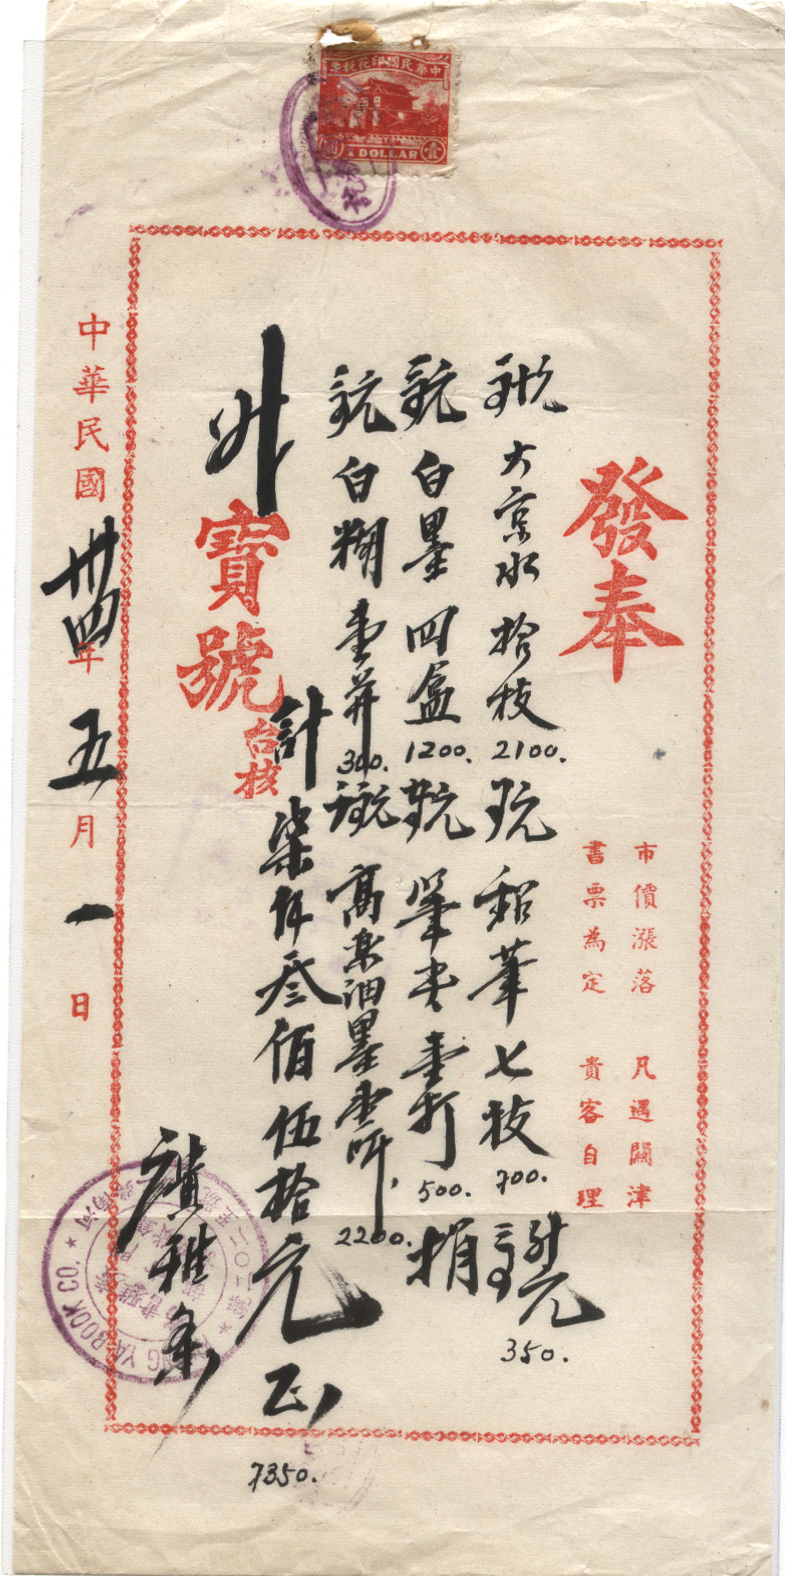 中華民國印花稅票
壹
DOLLAR
發奉
市價漲落 凡遇關津
書票為定 貴客自理
大京水拾枝
2100.
鉛筆七枝
700.
350.
白墨四盒
1200.
壹打
500.
捐
白糊壹
300.
高樂油墨壹听
2200.
計柒仟叁佰伍拾元正
7350.
寶號
台核
中華民國卅四年五月一日
廣雅
YA BOOK CO.